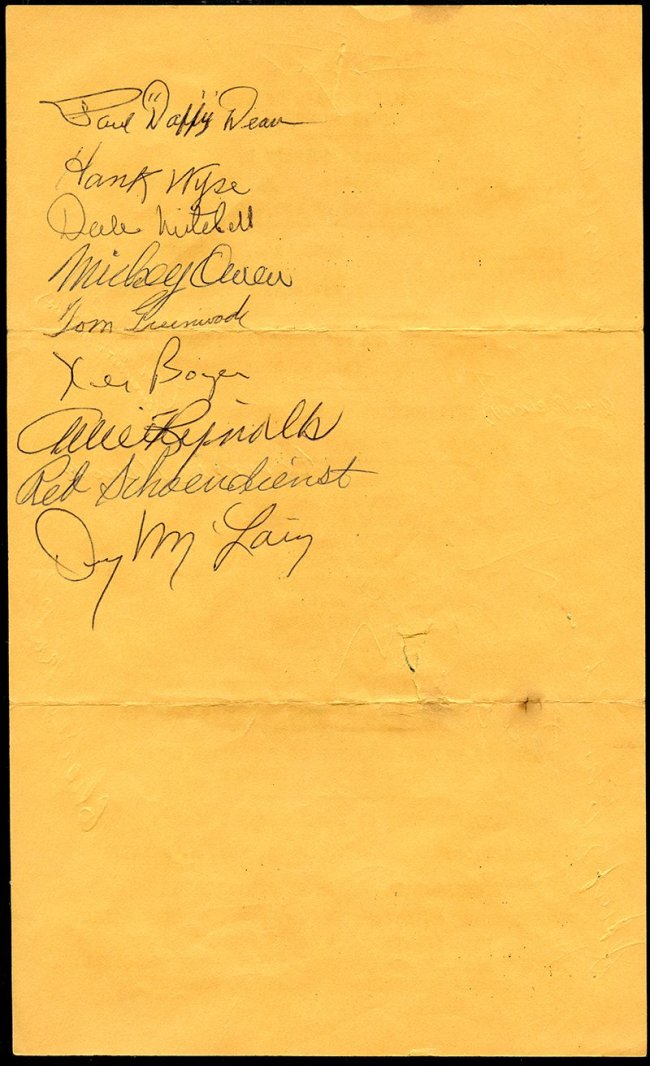 Paul "Daffy" Dean
Hank Wyse
Dale Mitchell
Mickey Owen
Tom Greenwade
Ken Boyer
Allie Reynolds
Red Schoendienst
Denny McLain